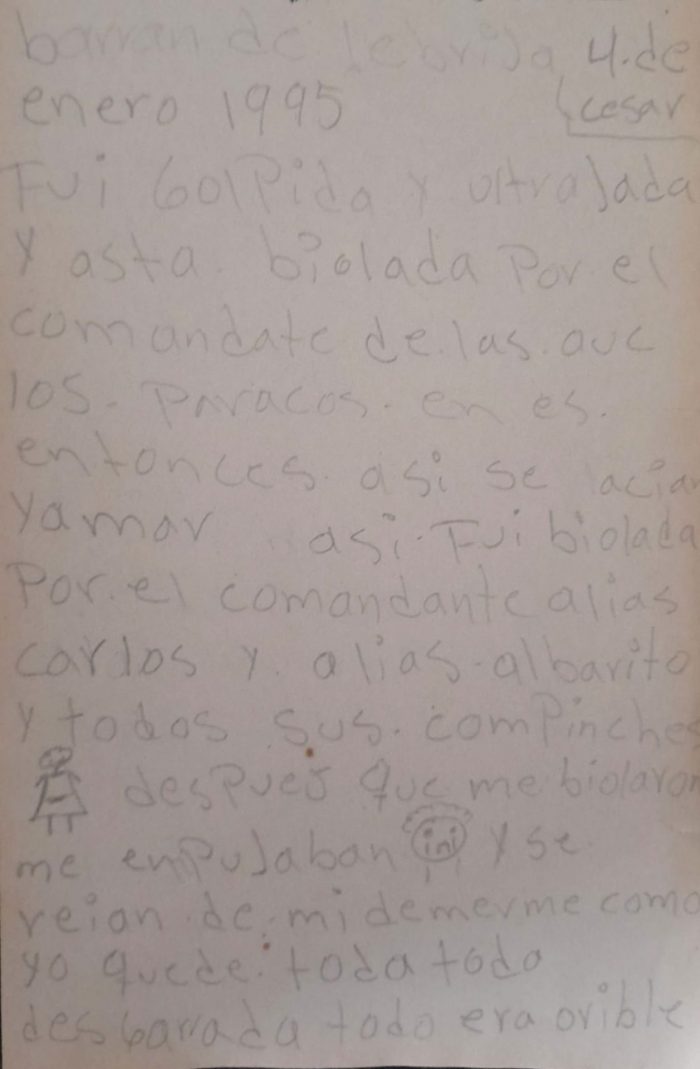 barran de lebrija 4. de
enero 1995 cesar
Fui GolPida y ultrajada
y asta biolada Por el
comandate de. las. auc
los. Paracos. en es.
entonces. asi se acian
yamar asi. Fui biolada
Por. el comandante alias
carlos y. alias. albarito
y todos sus. comPinches
desPues que me biolaron
me enPujaban y se
reian. de. mi demerme como
yo quede. toda toda
desGarrada todo era orible